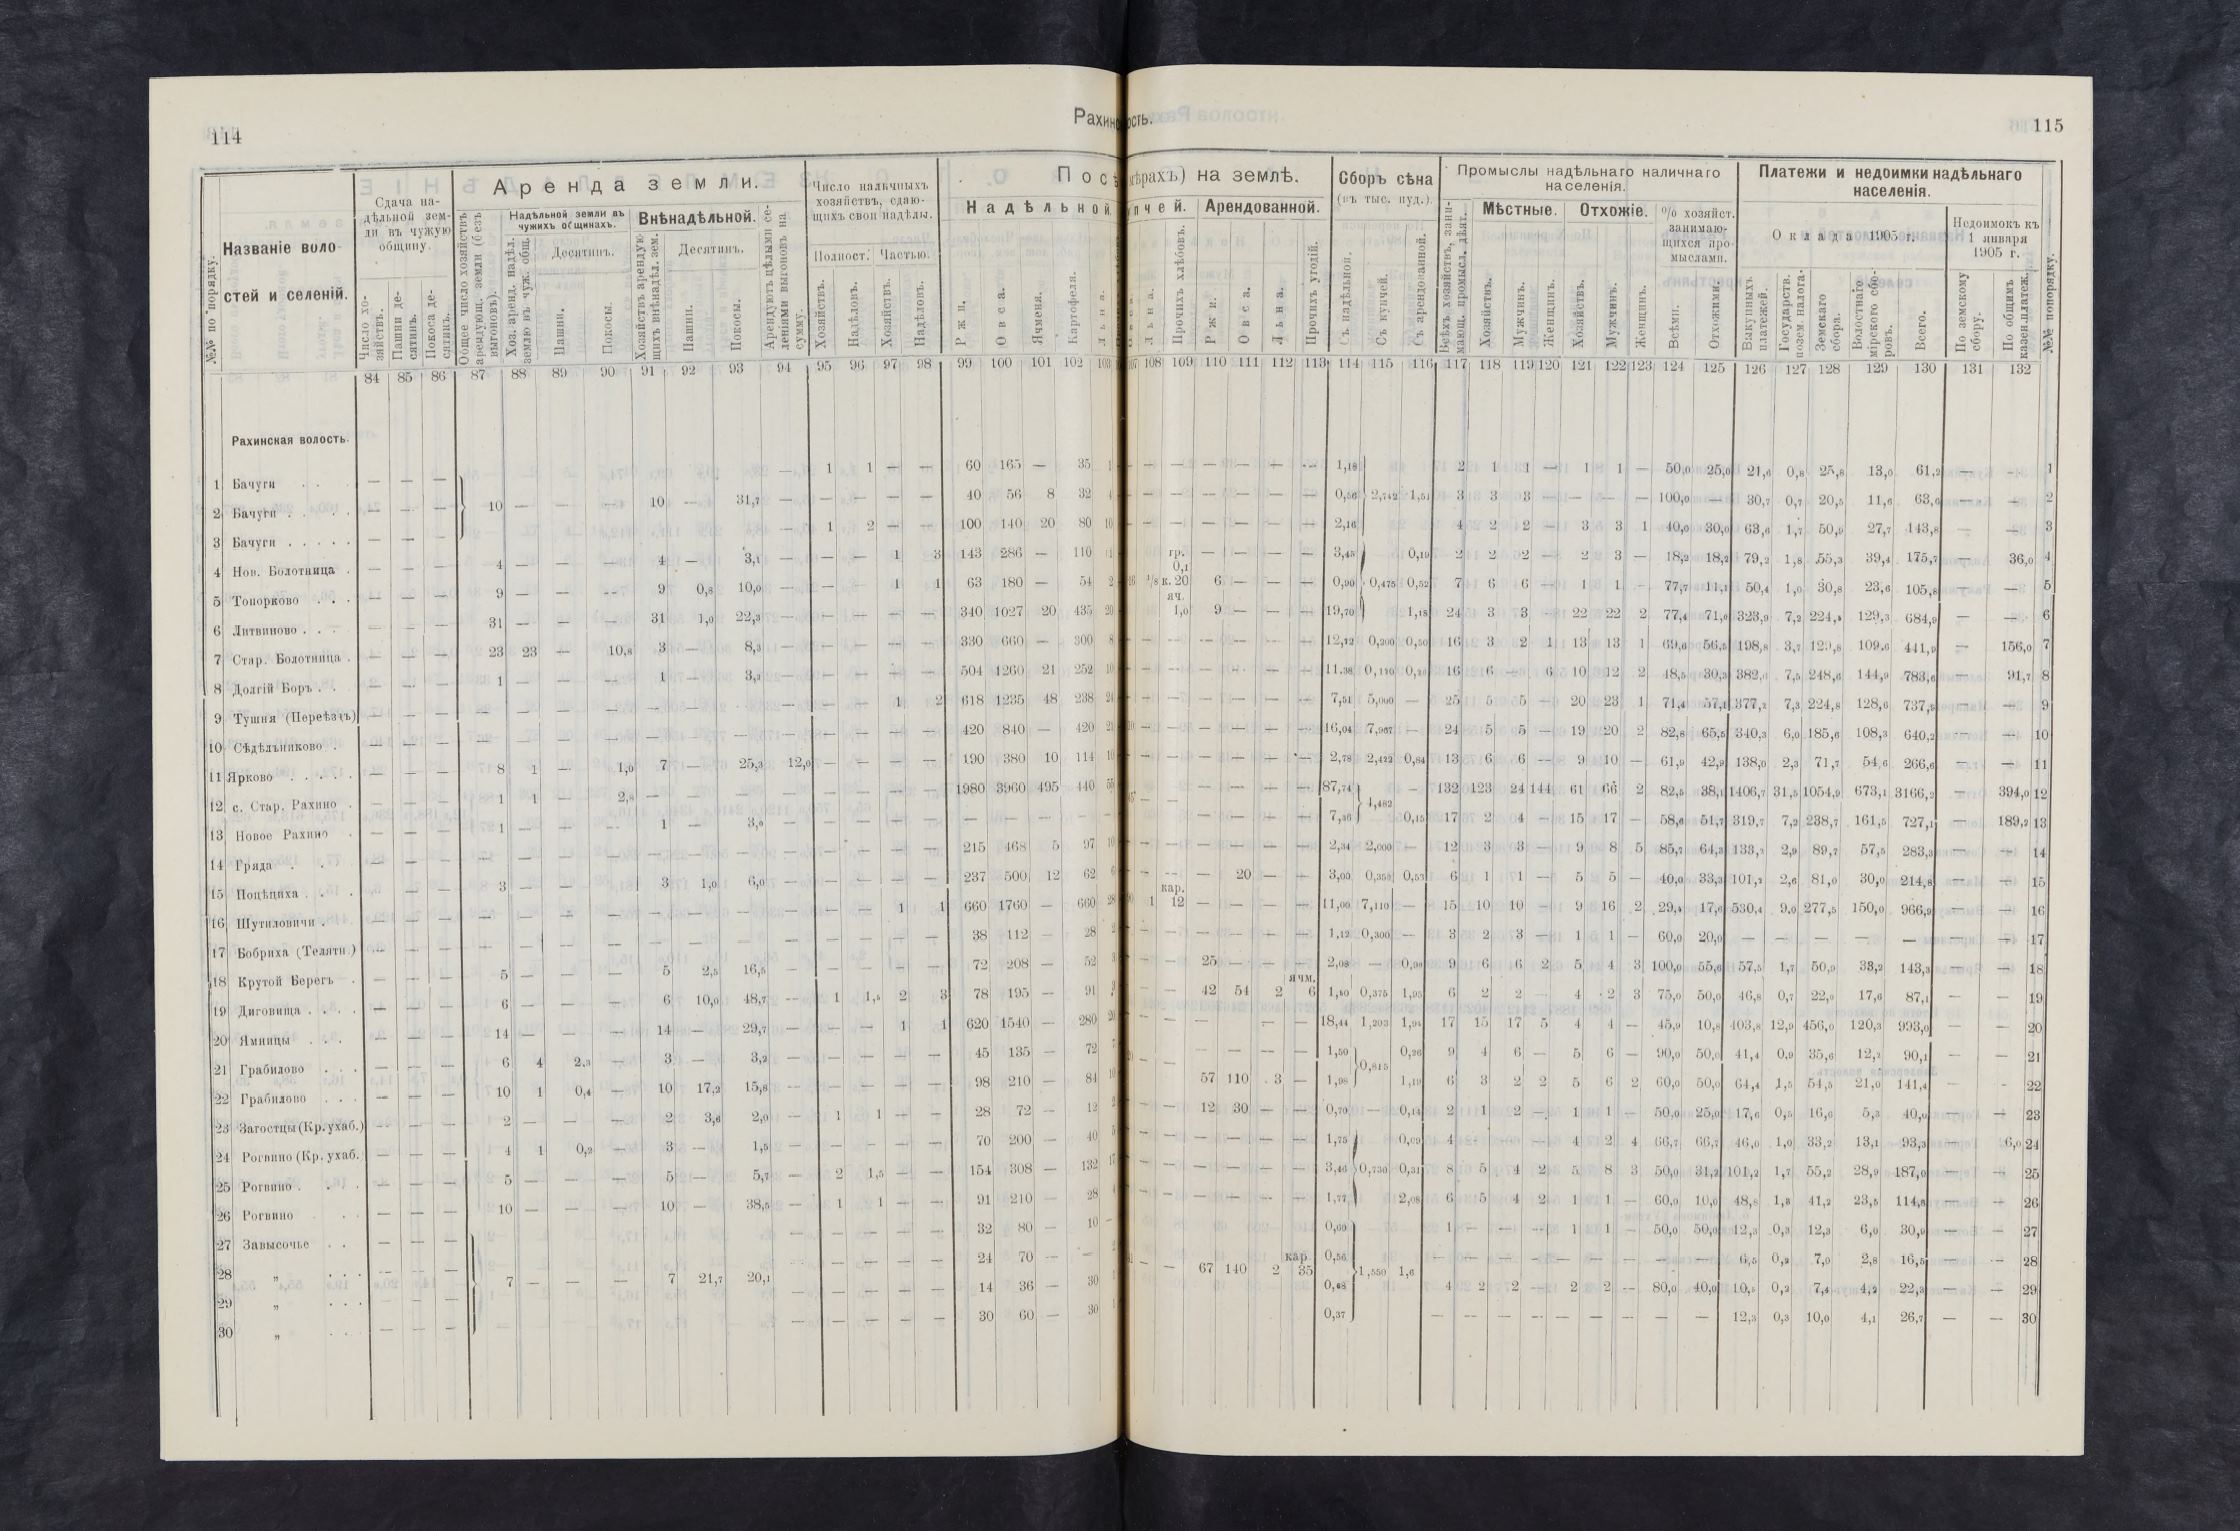 114
Рахинс
ость.
115
№№ по порядку.
Названіе воло-
стей и селеній.
Сдача на-
дѣльной зем-
ли въ чужую
общину.
Число хо-
зяйствъ.
Пашни де-
сятинъ.
Покоса де-
сятинъ.
Аренда земли.
Общее число хозяйствъ
арендующ. земли (безъ
выгоновъ).
Надѣльной земли въ
чужихъ общинахъ.
Хоз. аренд. надѣл.
землю въ чуж. общ.
Десятинъ.
Пашни.
Покосы.
Внѣнадѣльной.
Хозяйствъ арендую-
щихъ внѣнадѣл. зем.
Десятинъ.
Пашни.
Покосы.
Арендуютъ цѣлыми се-
леніями выгоновъ на
сумму.
Число наличныхъ
хозяйствъ, сдаю-
щихъ свои надѣлы.
Полност.
Частью.
Хозяйствъ.
Надѣловъ.
Хозяйствъ.
Надѣловъ.
Посѣ
мѣрахъ) на землѣ.
Надѣльной.
Ржи.
Овса.
Ячменя.
Картофеля.
Льна.
пчей.
Льна.
Прочихъ хлѣбовъ.
Арендованной.
Ржи.
Овса.
Льна.
Прочихъ угодій.
Сборъ сѣна
(въ тыс. пуд.).
Съ надѣльной.
Съ купчей.
Съ арендованной.
Промыслы надѣльнаго наличнаго
населенія.
Всѣхъ хозяйствъ, зани-
мающ. промысл. дѣят.
Мѣстные.
Хозяйствъ.
Мужчинъ.
Женщинъ.
Отхожіе.
Хозяйствъ.
Мужчинъ.
Женщинъ.
% хозяйст.
занимаю-
щихся про-
мыслами.
Всѣми.
Отхожими.
Платежи и недоимки надѣльнаго
населенія.
Оклада 1905 г.
Выкупныхъ
платежей.
Государств.
позем. налога.
Земскаго
сбора.
Волостнаго
мірского сбо-
ровъ.
Всего.
Недоимокъ къ
1 января
1905 г.
По земскому
сбору.
По общимъ
казен.платеж.
№№ по порядку.
84 85 86 87 88 89 90 91 92 93 94 95 96 97 98 99 100 101 102 103
107 108 109 110 111 112 113 114 115 116 117 118 119 120 121 122 123 124 125 126 127 128 129 130 131 132
Рахинская волость.
1 Бачуги . . — — — — 1 1 — — 60 165 — 35 1
2 Бачуги . . . . — — — 10 — — — 10 — 31,7 — 40 56 8 32 4
3 Бачуги . . . . . — — — — 1 2 — — 100 140 20 80 10
4 Нов. Болотница . — — — 4 — — — 4 — 3,1 — — — 1 3 143 286 — 110
5 Топорково . . . — — — 9 — — — 9 0,8 10,0 — — — 1 1 63 180 — 54 2
6 Литвиново . . . — — — 31 — — — 31 1,0 22,3 — — — — — 340 1027 20 435 20
7 Стар. Болотница . — — — 23 23 — 10,8 3 — 8,3 — — — — — 330 660 — 300 8
8 Долгій Боръ . . — — — 1 — — — 1 — 3,2 — — — — — 504 1260 21 252 10
9 Тушня (Переѣздъ) — — — — — — — — — — — — — 1 2 618 1235 48 238 24
10 Сѣдѣльниково . — — — — — — — — — — — — — — — 420 840 — 420 21
11 Ярково . . . . — — — 8 1 — 1,0 7 — 25,3 12,0 — — — — 190 380 10 114 10
12 с. Стар. Рахино . — — — 1 1 — 2,8 — — — — — — — — 1980 3960 495 440 55
13 Новое Рахино . — — — 1 — — — 1 — 3,0 — — — — — — — — — —
14 Гряда . . — — — — — — — — — — — — — — — 215 468 5 97 10
15 Поцѣпиха . . . — — — 3 — — — 3 1,0 6,0 — — — — — 237 500 12 62 6
16 Шутиловичи . — — — — — — — — — — — — — 1 1 660 1760 — 660 28
17 Бобриха (Телятн.) — — — — — — — — — — — — — — — 38 112 — 28 2
18 Крутой Берегъ . — — — 5 — — — 5 2,5 16,5 — — — — — 72 208 — 52 3
19 Диговища . . . . — — — 6 — — — 6 10,0 48,7 — 1 1,5 2 3 78 195 — 91
20 Ямницы . . . — — — 14 — — — 14 — 29,7 — — — 1 1 620 1540 — 280 20
21 Грабилово . . . — — — 6 4 2,3 — 3 — 3,2 — — — — — 45 135 — 72
22 Грабилово . . . — — — 10 1 0,4 — 10 17,2 15,8 — — — — — 98 210 — 84 10
23 Загостцы (Кр. ухаб.) — — — 2 — — — 2 3,6 2,0 — 1 1 — — 28 72 — 12 2
24 Рогвино (Кр. ухаб. — — — 4 1 0,2 — 3 — 1,5 — — — — — 70 200 — 40 5
25 Рогвино . . . — — — 5 — — — 5 — 5,7 — 2 1,5 — — 154 308 — 132 17
26 Рогвино . . — — — 10 — — — 10 — 38,5 — 1 1 — — 91 210 — 28
27 Завысочье . . — — — — — — — — 32 80 — 10 —
28 „ . . . — — — 7 — — — 7 21,7 20,1 — — — — — 24 70 — —
29 „ . . . — — — — — — — — 14 36 — 30
30 „ . . . — — — — — — — — 30 60 — 30
— — — — — — 1,18 2 1 1 — 1 1 — 50,0 25,0 21,6 0,8 25,8 13,0 61,2 — — 1
— — — — — — 0,56 2,742 1,51 3 3 3 — — — — 100,0 — 30,7 0,7 20,5 11,6 63,6 — — 2
— — — — — — 2,16 4 2 2 — 3 3 1 40,0 30,0 63,6 1,7 50,9 27,7 143,8 — — 3
гр.
0,1 — — — — 3,45 0,19 2 2 2 — 2 3 — 18,2 18,2 79,2 1,8 55,3 39,4 175,7 — 36,0 4
1/8 к. 20 6 — — — 0,90 0,475 0,52 7 6 6 — 1 1 — 77,7 11,1 50,4 1,0 30,8 23,6 105,8 — — 5
яч.
1,0 9 — — — 19,70 1,18 24 3 3 — 22 22 2 77,4 71,0 323,9 7,2 224,5 129,3 684,9 — — 6
— — — — — — 12,12 0,200 0,50 16 3 2 1 13 13 1 69,6 56,5 198,8 3,7 129,8 109,6 441,9 — 156,0 7
— — — — — — 11,38 0,120 0,20 16 6 — 6 10 12 2 48,5 30,3 382,0 7,5 248,6 144,9 783,6 — 91,7 8
— — — — — — 7,51 5,000 — 25 5 5 — 20 23 1 71,4 57,1 377,2 7,3 224,8 128,6 737,9 — — 9
— — — — — — 16,04 7,967 — 24 5 5 — 19 20 2 82,8 65,5 340,3 6,0 185,6 108,3 640,2 — — 10
— — — — — — 2,78 2,422 0,84 13 6 6 — 9 10 — 61,9 42,9 138,0 2,3 71,7 54,6 266,6 — — 11
— — — — — — 87,74 — 132 123 24 144 61 66 2 82,5 38,1 1406,7 31,5 1054,9 673,1 3166,2 — 394,0 12
— — — — 7,36 4,482 0,15 17 2 4 — 15 17 — 58,6 51,7 319,7 7,2 238,7 161,5 727,1 — 189,2 13
— — — — — — 2,34 2,000 — 12 3 3 — 9 8 5 85,7 64,3 133,2 2,9 89,7 57,5 283,3 — — 14
— — — 20 — — 3,00 0,350 0,53 6 1 1 — 5 5 — 40,0 33,3 101,2 2,6 81,0 30,0 214,8 — — 15
кар.
1 12 — — — — 11,00 7,110 — 15 10 10 — 9 16 2 29,4 17,6 530,4 9,0 277,5 150,0 966,9 — — 16
— — — — — — 1,12 0,300 — 3 2 3 — 1 1 — 60,0 20,0 — — — — — — — 17
— — 25 — — — 2,08 — 0,90 9 6 6 2 5 4 3 100,0 55,6 57,5 1,7 50,9 33,2 143,3 — — 18
ячм.
— — 42 54 2 6 1,50 0,375 1,95 6 2 2 — 4 2 3 75,0 50,0 46,8 0,7 22,0 17,6 87,1 — — 19
— — — — 18,44 1,203 1,94 17 15 17 5 4 4 — 45,9 10,8 403,8 12,9 456,0 120,3 993,0 — — 20
— — — — — — 1,50 0,26 9 4 6 — 5 6 — 90,0 50,0 41,4 0,9 35,6 12,2 90,1 — — 21
— — 57 110 3 — 1,98 0,815 1,19 6 3 2 2 5 6 2 60,0 50,0 64,4 1,5 54,5 21,0 141,4 — — 22
— — 12 30 — — 0,70 — 0,14 2 1 2 — 1 1 — 50,0 25,0 17,6 0,5 16,6 5,3 40,0 — — 23
— — — — — — 1,75 0,09 4 — — — 4 2 4 66,7 66,7 46,0 1,0 33,2 13,1 93,3 — 6,0 24
— — — — — — 3,46 0,730 0,31 8 5 4 2 5 8 3 50,0 31,2 101,2 1,7 55,2 28,9 187,0 — — 25
— — — — — — 1,77 2,08 6 5 4 2 1 1 — 60,0 10,0 48,8 1,3 41,2 23,5 114,8 — — 26
0,60 1 — — — 1 1 — 50,0 50,0 12,3 0,3 12,3 6,0 30,9 — — 27
кар.
— — 67 140 2 35 0,56 1,550 1,6 — — — — — — — — — 6,5 0,2 7,0 2,8 16,5 — — 28
0,68 4 2 2 — 2 2 — 80,0 40,0 10,5 0,2 7,4 4,2 22,3 — — 29
0,37 — — — — — — — — — 12,3 0,3 10,0 4,1 26,7 — — 30